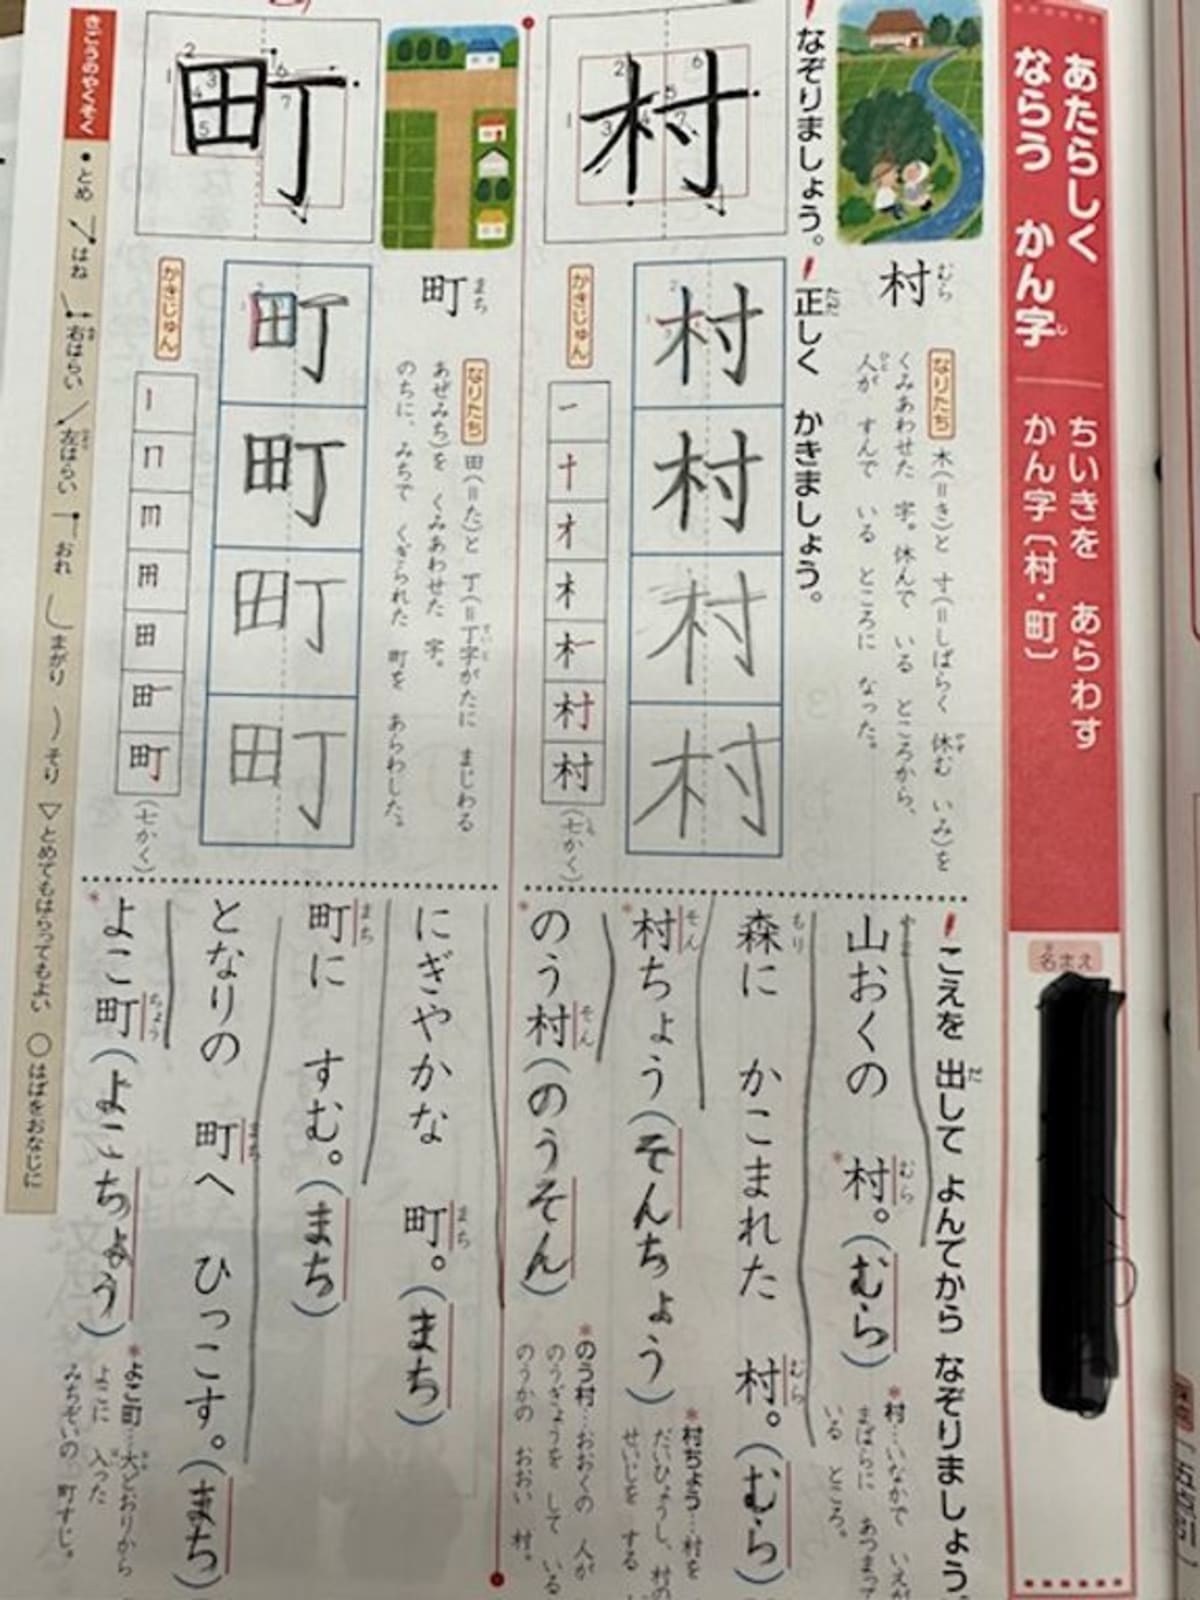 あたらしく
ならう かん字
し
ちいきを あらわす
かん字〔村・町〕
名まえ
なぞりましょう。
村
村
むら
なりたち
木(=き)と 寸(=しばらく 休む いみ)を
くみあわせた 字。休んで いる ところから、
人が すんで いる ところに なった。
正しく かきましょう。
村
村
村
村
かきじゅん
村
村
(七かく)
町
町
まち
なりたち
田(=た)と 丁(=丁字がたに まじわる
あぜみち)を くみあわせた 字。
のちに、みちで くぎられた 町を あらわした。
町
町
町
町
かきじゅん
田
町
(七かく)
こえを 出して よんでから なぞりましょう。
山おくの 村。(むら)
*村…いなかで いえが
まばらに あつまって
いる ところ。
森に かこまれた 村。(むら)
村ちょう(そんちょう)
*村ちょう…村を
だいひょうし、村の
せいじを する
のう村(のうそん)
*のう村…おおくの 人が
のうぎょうを して いる
のうかの おおい 村。
にぎやかな 町。(まち)
町に すむ。(まち)
となりの 町へ ひっこす。(まち)
よこ町(よこちょう)
*よこ町…大どおりから
よこに 入った
みちぞいの 町すじ。
きごうのやくそく
とめ はね 右はらい 左はらい おれ まがり そり とめてもはらってもよい はばをおなじに